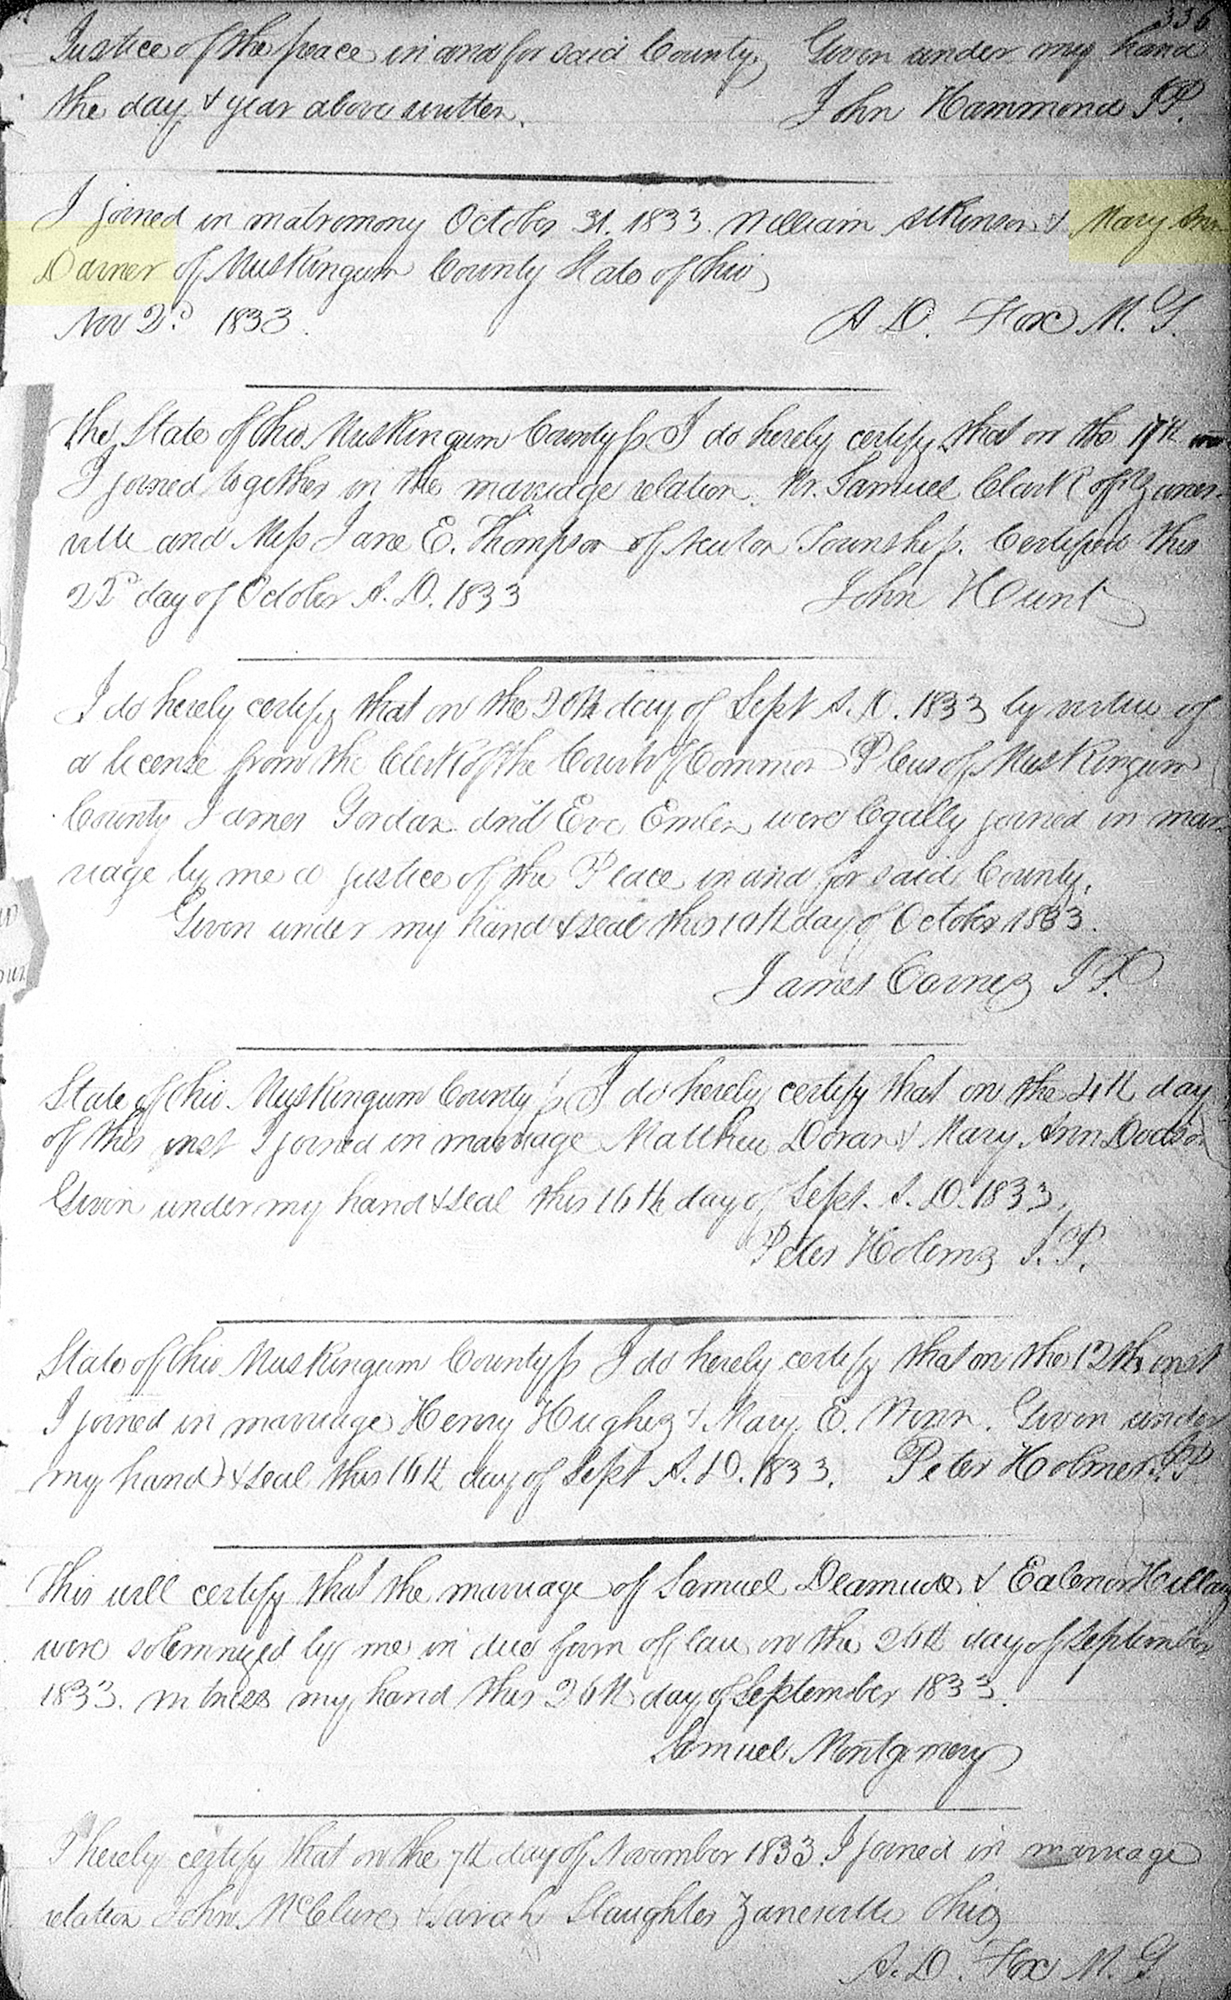 336
Justice of the peace in and for said County, Given under my hand
the day & year above written. John Hammond J.P.
I joined in matromony October 31. 1833. William Atkinson & Mary Ann
Darner of Muskingum County State of Ohio
Nov 2d. 1833. A. D. Fox M. G.
The State of Ohio Muskingum County ss I do hereby certify that on the 17th
I joined together in the marriage relation Mr. Samuel Clark of Zanes-
ville and Miss Jane E. Thompson of Newton Township. Certified this
22d day of October A. D. 1833 John Hunt
I do hereby certify that on the 26th day of Sept A. D. 1833 by virtue of
a license from the Clerk of the Court of Common Pleas of Muskingum
County James Gordan and Eve Emlen were legally joined in mar-
riage by me a justice of the Peace in and for said County.
Given under my hand & seal this 10th day of October 1833.
James Carnes J.P.
State of Ohio Muskingum County ss I do hereby certify that on the 4th day
of this inst I joined in marriage Matthew Doran & Mary Ann Dodson
Given under my hand & seal this 16th day of Sept. A. D. 1833,
Peter Holems J. P.
State of Ohio Muskingum County ss I do hereby certify that on the 12th inst
I joined in marriage Henry Hughes & Mary E. Winn. Given under
my hand & seal this 16th day of Sept A. D. 1833. Peter Holmes J.P.
This will certify that the marriage of Samuel Deamude & Ealenor Hillary
were solemnized by me in due form of law on the 26th day of September
1833. witness my hand this 26th day of September 1833.
Samuel Montgomery
I hereby certify that on the 7th day of November 1833. I joined in marriage
relation John McClure & Sarah Slaughter Zanesville Ohio
A. D. Fox M. G.